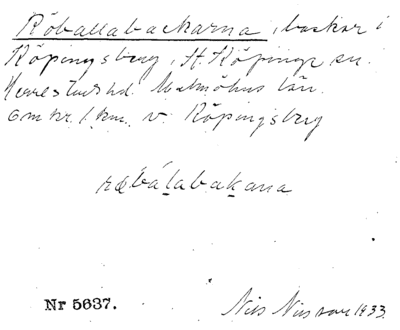 Röballabackarna, backar i
Köpingsberg, St. Köpinge sn.
Herrestads hd. Malmöhus län.
omkr. 1 km. v. Köpingsberg
rœbálabakana
Nr 5637.
Nils Nilsson 1933.